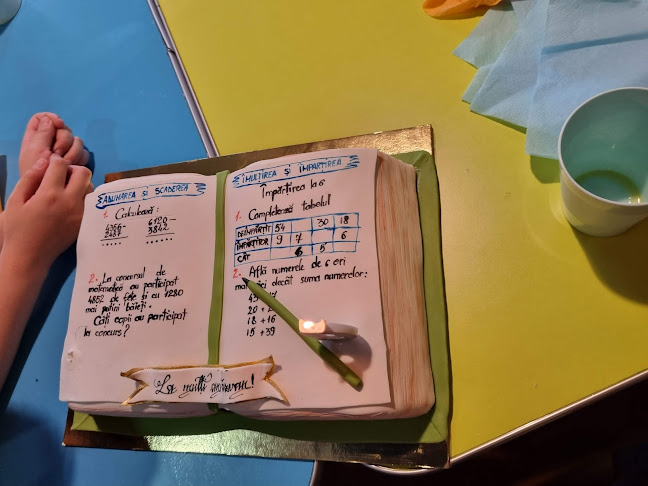 ADUNAREA ȘI SCĂDEREA
1. Calculează:
6120-
2487 3842
...... ......
2. La concursul de
matematică au participat
4852 de fete și cu 1280
mai puțini băieți.
Câți copii au participat
la concurs?
ÎMULȚIREA ȘI ÎMPĂRȚIREA
Împărțirea la 6
1. Completează tabelul
DEÎMPĂRȚIT 54 30 18
ÎMPĂRȚITOR 9 7 6
CÂT 6 5
2. Află numerele de 6 ori
mai mici decât suma numerelor:
20 +
18 + 16
15 + 39
La mulți